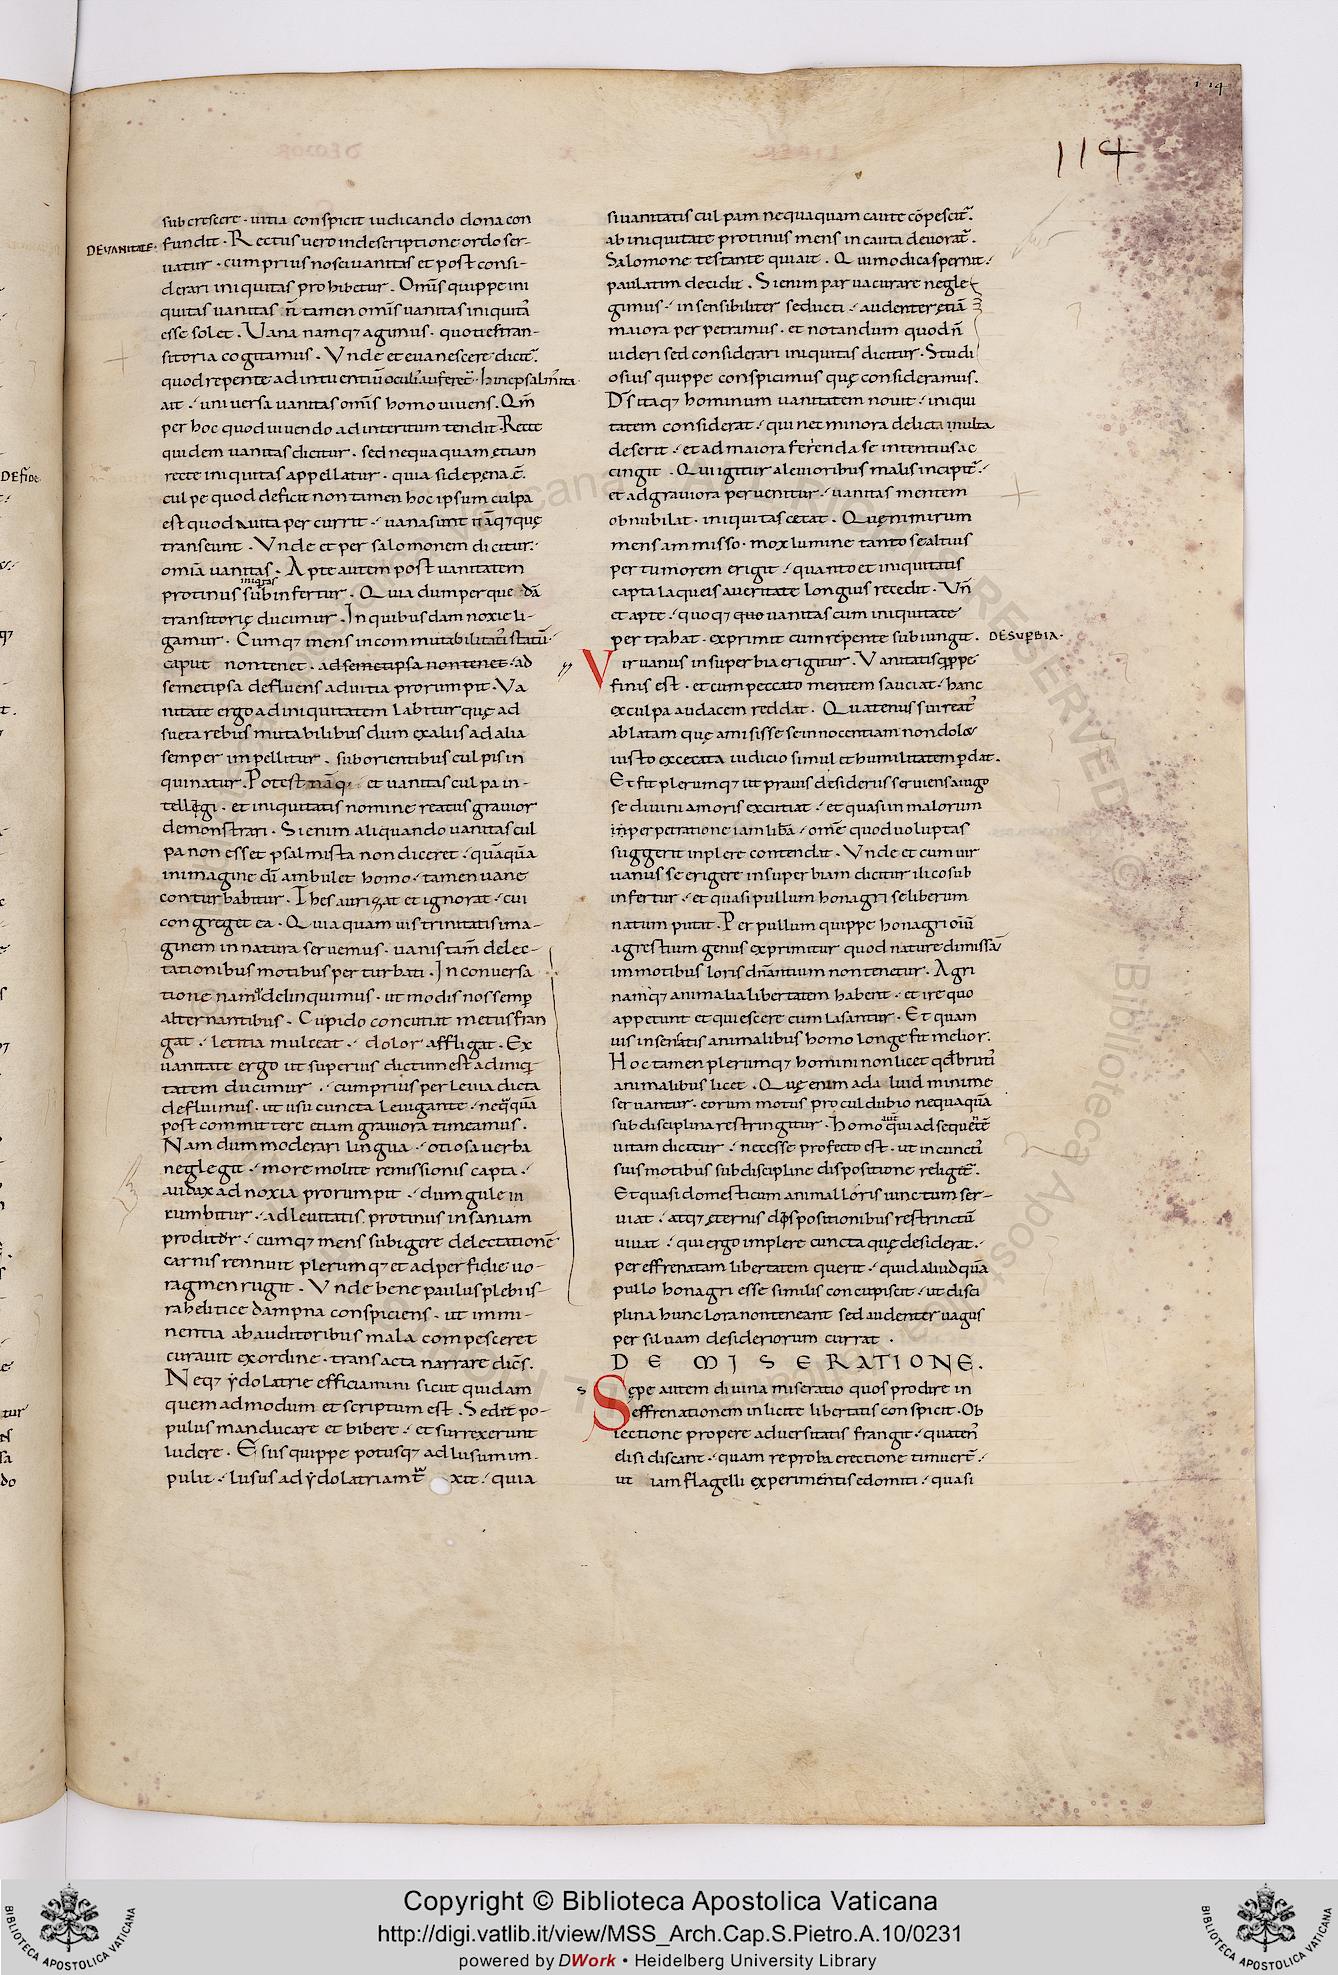 114
114
subcrescere · vitia conspicit iudicando dona con
DE VANITATE·
fundit · Rectus vero in descriptione ordo ser-
uatur · cum prius nosci uanitas et post consi-
derari iniquitas prohibetur . Om̅s quippe ini
quitas uanitas · n̅ tamen om̅s uanitas iniquita᷒
esse solet . Uana namq; agimus · quotiens tran-
sitoria cogitamus . Vnde et euanescere dicit᷒.
quod repente ad intuentiu̅ oculis auferet᷒ · hinc psalmista
ait ·/ uniuersa uanitas om̅s homo uiuens . Qm̅
per hoc quod uiuendo ad interitum tendit · Recte
quidem uanitas dicitur . sed nequaquam etiam
recte iniquitas appellatur · quia si de pęna e̅.
culpe quod deficit non tamen hoc ipsum culpa
est quod a uita percurrit ·/ uana sunt na̅q; quę
transeunt . Vnde et per salomonem dicitur ·/
omia̅ uanitas . Apte autem post uanitatem
iniq̇tas
protinus subinfertur . Quia dum per que da̅
transitorię ducimur . In quibusdam noxie li-
gamur · Cumq; mens incommutabilitatis statu̅ ·
caput non tenet . ad semetipsa non tenet · ad
semetipsa defluens ad uitia prorumpit . Va
nitate ergo ad iniquitatem labitur quę ad
sueta rebus mutabilibus dum ex aliis ad alia
semper impellitur . suborientibus culpis in
quinatur . Potest na̅q; et uanitas culpa in-
tellęgi · et iniquitatis nomine reatus grauior
demonstrari . Si enim aliquando uanitas cul
pa non esset psalmista non diceret ·/ qua̅qua̅
in imagine di̅ ambulet homo ·/ tamen uane
conturbabitur . Thesaurizat et ignorat ·/ cui
congreget ea . Quia quamuis trinitatis ima-
ginem in natura seruemus · uanis tam̅ delec-
tationibus motibus perturbati . In conuersa
tione nam̅ delinquimus · ut modis nos semp̅
alternantibus . Cupido concutiat metus fran
gat ·/ letitia mulceat ·/ dolor affligat . Ex
uanitate ergo ut superius dictum est ad iniqui
tatem ducimur ·/ cum prius per leuia dicta
defluimus · ut usu cuncta leuigante ·/ neq̇qua̅
post committere etiam grauiora timeamus .
Nam dum moderari lingua ·/ otiosa uerba
neglegit ·/ more molite remissionis capta ·/
audax ad noxia prorumpit ·/ dum gule in
cumbitur ·/ ad leuitatis protinus insaniam
proditur ·/ cumq; mens subigere delectatione̅
carnis rennuit plerumq; et ad perfidie uo-
ragmen rugit . Vnde bene paulus plebis is-
rahelitice dampna conspiciens . ut immi-
nentia ab auditoribus mala compesceret
curauit ex ordine · transacta narrare dice̅s.
Neq; ydolatrie efficiamini sicut quidam
quem admodum et scriptum est . Sedet po-
pulus manducare et bibere ·/ et surrexerunt
ludere · Esus quippe potusq; ad lusum im-
pulit ·/ lusus ad ydolatriam t᷒xit ·/ quia
si uanitatis culpam nequaquam caute co̅pescit᷒.
ab iniquitate protinus mens incauta deuorat᷒ .
Salomone testante qui ait . Qui modica spernit ·/
paulatim decidit . Si enim parua curare negle
gimus ·/ insensibiliter seducti ·/ audenter etia̅
maiora perpetramus · et notandum quod n̅
uideri sed considerari iniquitas dicitur · Studi
osius quippe conspicimus quę consideramus.
D̅s itaq; hominum uanitatem nouit ·/ iniqui
tatem considerat ·/ qui nec minora delicta inulta
deserit ·/ et ad maiora ferienda se intentius ac
cingit . Qui igitur a leuioribus malis incipit᷒ ·/
et ad grauiora peruenitur ·/ uanitas mentem
obnubilat · iniquitas cecat . Quę nimirum
mens ammisso · mox lumine tanto se altius
per tumorem erigit ·/ quanto et iniquitatis
capta laqueis a ueritate longius recedit . Vn̅
et apte ·/ quoq; quo uanitas cum iniquitate
pertrahat · exprimit cum repente subiungit .
DE SUP̅BIA ·
Vir uanus in superbia erigitur . Vanitatis q̇ppe
finis est · et cum peccato mentem sauciat · hanc
ex culpa audacem reddat . Quatenus sui reat᷒
ablatam quę amisisse se innocentiam non dolet
iusto excecata iudicio simul et humilitatem p̅dat .
Et fit plerumq; ut prauis desideriis seruiens a iugo
se diuini amoris excutiat ·/ et quasi in malorum
in perpetratione iam libera̅ ·/ ome̅ quod uoluptas
suggerit inplere contendat . Vnde et cum uir
uanus se erigere in superbiam dicitur ilico sub
infertur ·/ et quasi pullum honagri se liberum
natum putit . Per pullum quippe honagri oi̅u̅
agrestium genus exprimitur quod nature dimissa̅
in motibus loris dn̅antium non tenetur . Agri
namq; animalia libertatem habent ·/ et ire quo
appetunt et quiescere cum lasantur . Et quam
uis insensatis animalibus homo longe fit melior .
Hoc tamen plerumq; homini non licet qd̅ bruti᷒
animalibus licet . Quę enim ad aliud minime
seruantur . eorum motus procul dubio nequaqua̅
sub disciplina restringitur . Homo aut̅ qui ad sequente̅
uitam dicitur ·/ necesse profecto est · ut in cunctis
suis motibus sub discipline dispositione religet᷒ .
Et quasi domesticum animal loris iunctum ser-
uiat ·/ atq; ęternis dispositionibus restrinctu̅
uiuat ·/ qui ergo implere cuncta quę desiderat ·/
per effrenatam libertatem querit ·/ quid aliud qua̅
pullo honagri esse similis concupiscit ·/ ut disci
plina hunc lora non teneant sed audenter uagus
per siluam desideriorum currat .
DE MISERATIONE.
Sępe autem diuina miseratio quos prodire in
effrenationem inlicite libertatis conspicit · Ob
iectione propere aduersitatis frangit ·/ quaten᷒
elisi discant ·/ quam reproba erectione timuer̅t ·/
ut iam flagelli experimentis edomiti ·/ quasi
Copyright © Biblioteca Apostolica Vaticana
http://digi.vatlib.it/view/MSS_Arch.Cap.S.Pietro.A.10/0231
powered by DWork • Heidelberg University Library
BIBLIOTECA APOSTOLICA VATICANA
BIBLIOTECA APOSTOLICA VATICANA